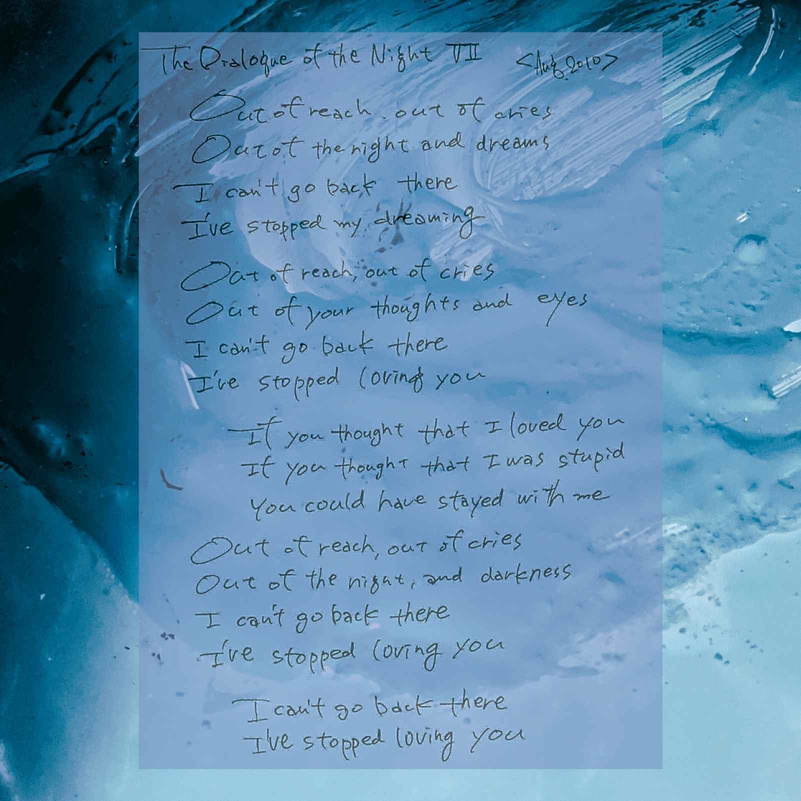 The Dialogue of the Night VII <Aug.2010>
Out of reach. out of cries
Out of the night and dreams
I can't go back there
I've stopped my dreaming
Out of reach, out of cries
Out of your thoughts and eyes
I can't go back there
I've stopped loving you
If you thought that I loved you
If you thought that I was stupid
You could have stayed with me
Out of reach, out of cries
Out of the night, and darkness
I can't go back there
I've stopped loving you
I can't go back there
I've stopped loving you